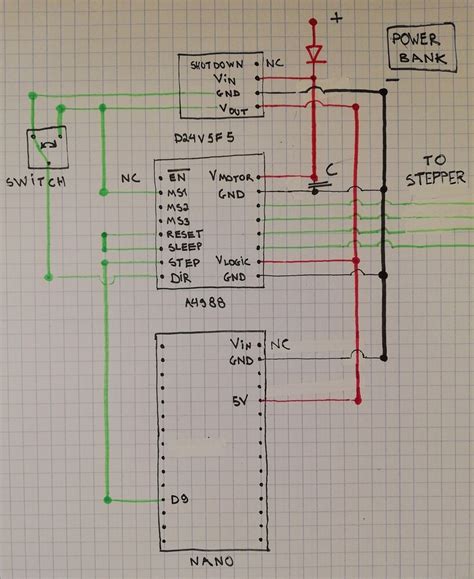 +
POWER
BANK
-
SHUTDOWN NC
VIN
GND
VOUT
D24V5F5
SWITCH
NC
EN
MS1
MS2
MS3
RESET
SLEEP
STEP
DIR
VMOTOR
GND
VLOGIC
GND
C
TO
STEPPER
A4988
VIN NC
GND
5V
D9
NANO